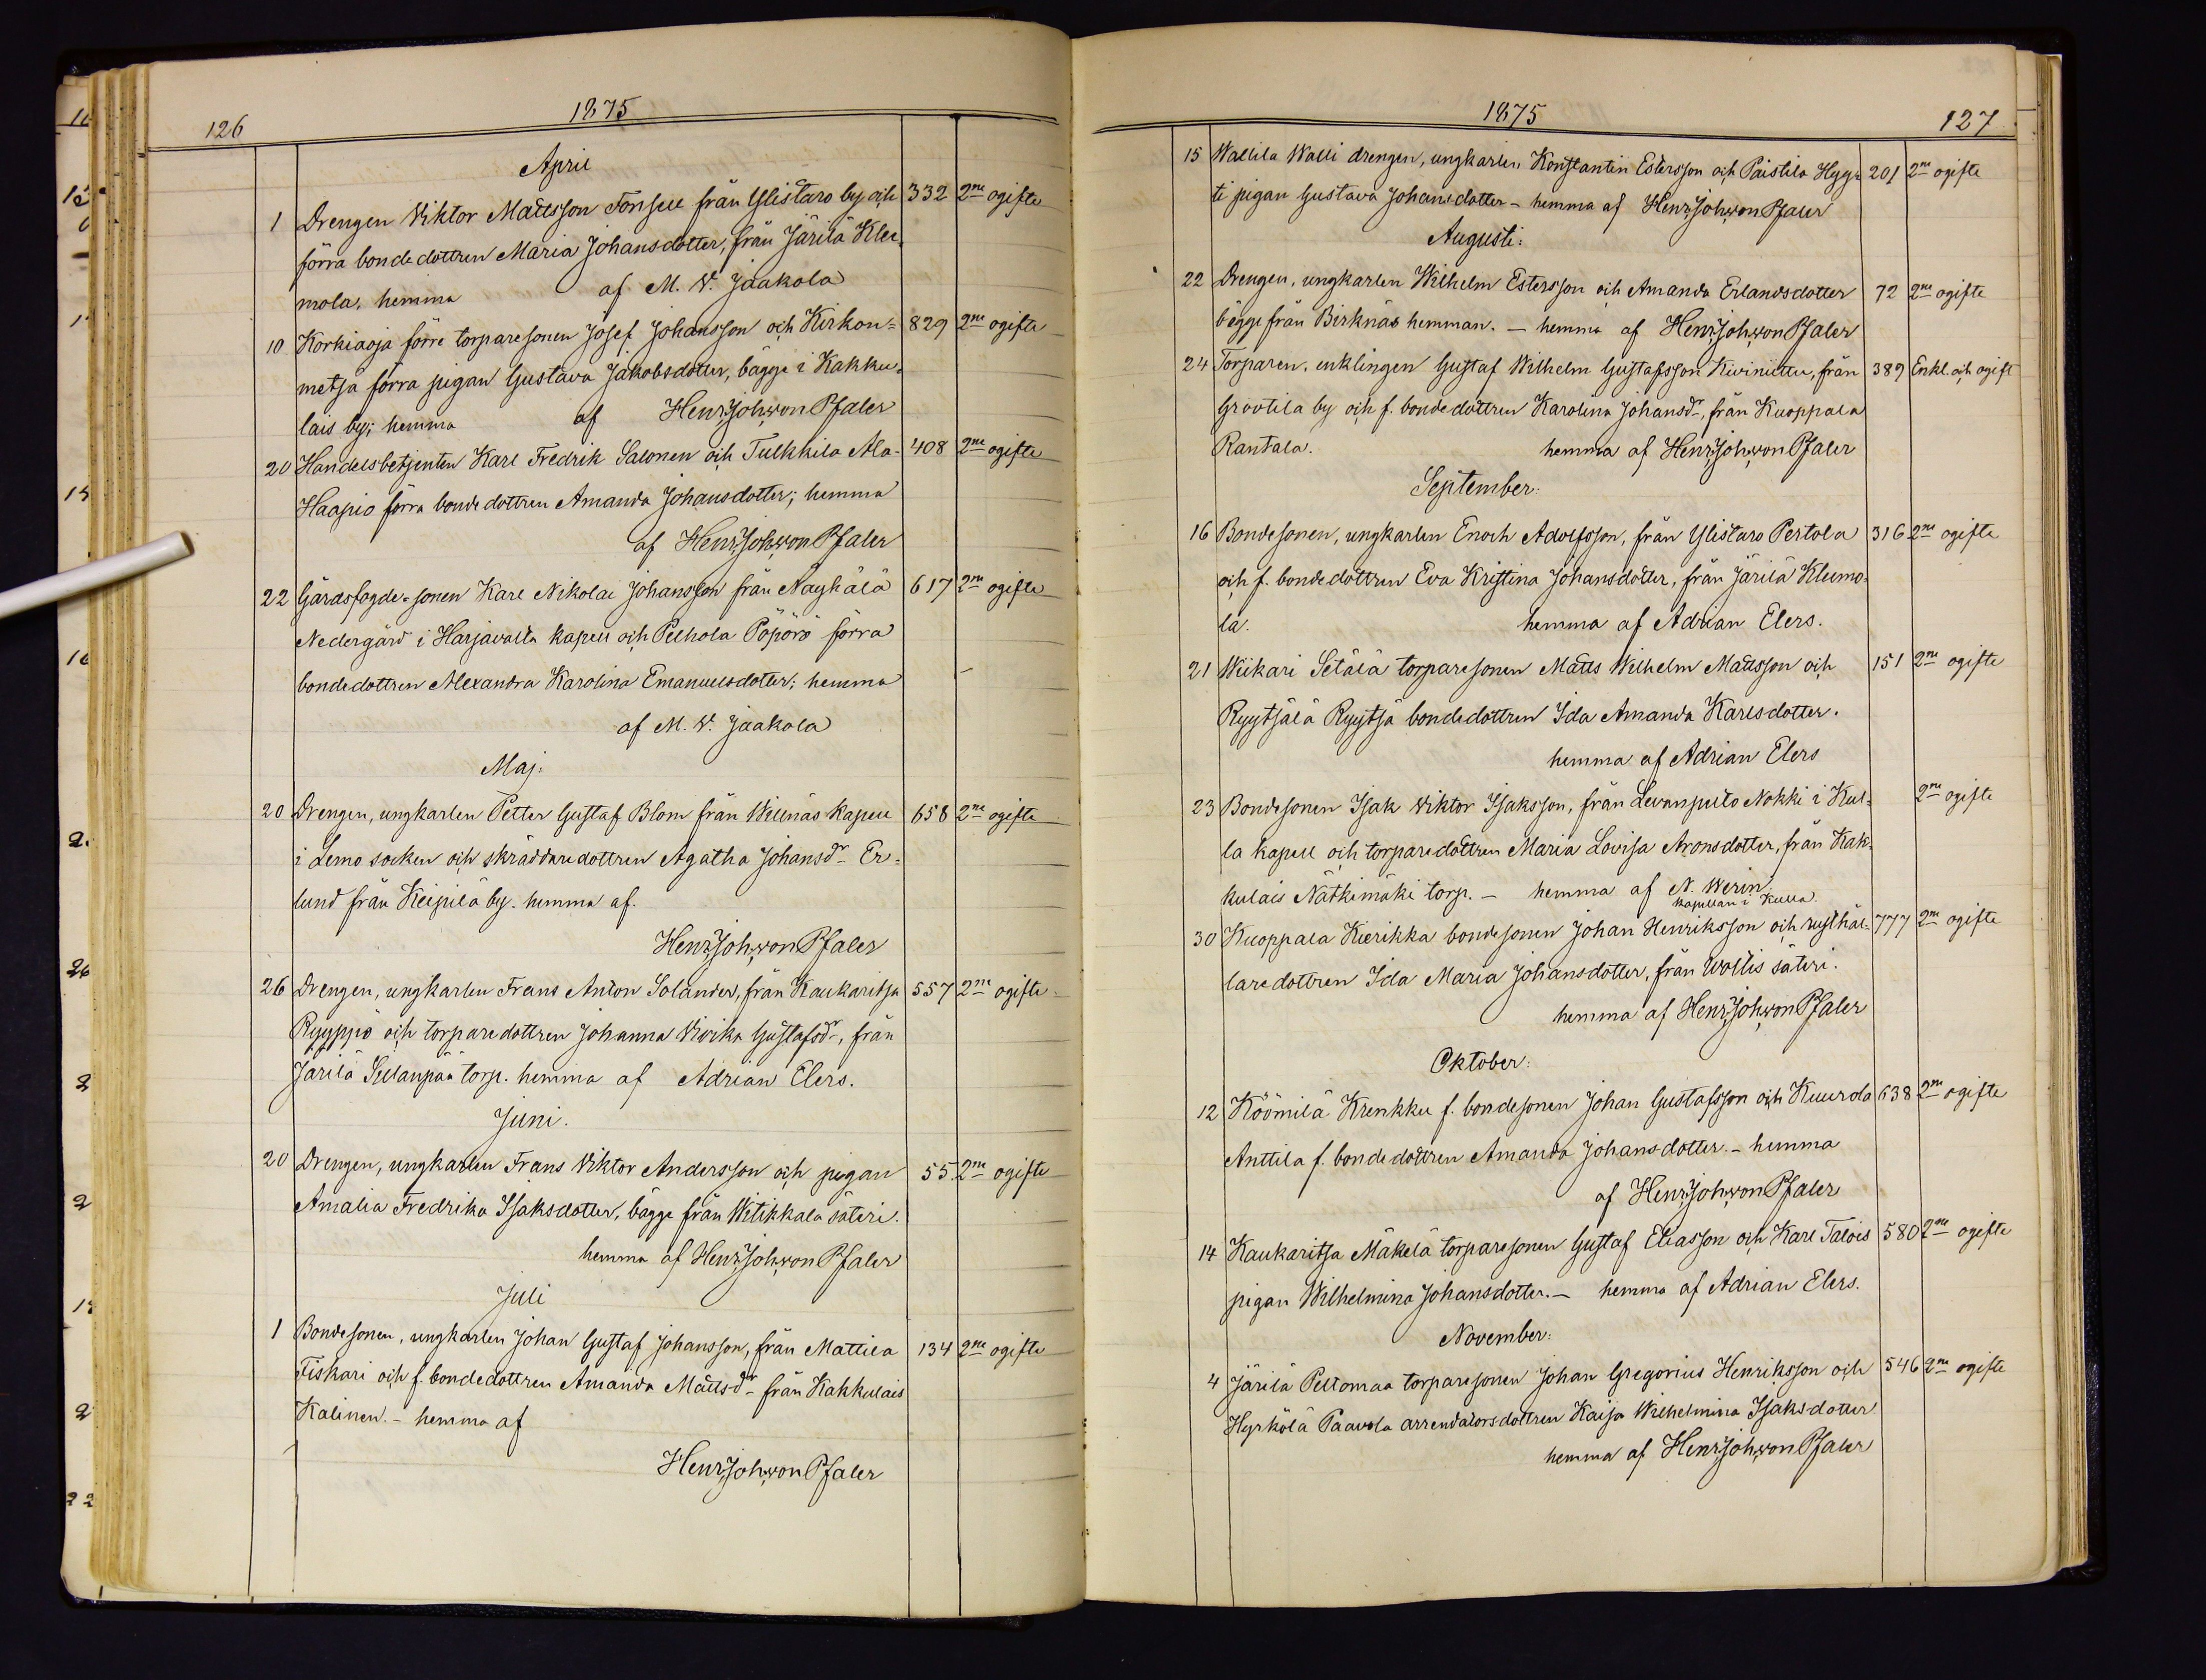 126
1875
April
1 Drengen Viktor Mattsson Fonsell från Ylistaro by och 332 2ne ogifte
förra bondedottren Maria Johansdotter, från Järilä Klee-
mola, hemma af M. V. Jaakola
10 Korkiaoja förre torparesonen Josef Johansson och Kirkon= 829 2ne ogifte
metsä förra pigan Gustava Jakobsdotter, bägge i Kakku-
lais by; hemma af Henr. Joh. von Pfaler
20 Handelsbetjenten Karl Fredrik Salonen och Tulkkila Ala- 408 2ne ogifte
Haapio förra bondedottren Amanda Johansdotter; hemma
af Henr. Joh. von Pfaler
22 Gårdsfogde-sonen Karl Nikolai Johansson från Nayhälä 617 2ne ogifte
Nedergård i Harjavalta kapell och Pelhola Pöpörö förra
bondedottren Alexandra Karolina Emanuelsdotter; hemma
af M. V. Jaakola
Maj:
20 Drengen, ungkarlen Petter Gustaf Blom från Willnäs kapell 658 2ne ogifte
i Lemo socken och skräddaredottren Agatha Johansdr Er=
lund från Keipilä by. hemma af.
Henr. Joh. von Pfaler
26 Drengen, ungkarlen Frans Anton Solander, från Kaukaritsa 557 2ne ogifte
Ryyppö och torparedottren Johanna Vivika Gustafsdr, från
Järilä Sillanpää torp. hemma af Adrian Elers.
Juni.
20 Drengen, ungkarlen Frans Viktor Andersson och pigan 55 2ne ogifte
Amalia Fredrika Isaksdotter, bägge från Witikkala säteri.
hemma af Henr. Joh. von Pfaler
Juli
1 Bondesonen, ungkarlen Johan Gustaf Johansson, från Mattila 134 2ne ogifte
Fiskari och f. bondedottren Amanda Mattsdr från Kakkulais
Kalinen. - hemma af
Henr. Joh. von Pfaler
1875
127
15 Wallila Walli drengen, ungkarlen Konstantin Estersson och Paistila Hyg= 201 2ne ogifte
ti pigan Gustava Johansdotter - hemma af Henr. Joh. von Pfaler
Augusti:
22 Drengen, ungkarlen Wilhelm Estersson och Amanda Erlandsdotter 72 2ne ogifte
bägge från Birknäs hemman. - hemma af Henr. Joh. von Pfaler
24 Torparen, enklingen Gustaf Wilhelm Gustafsson Kiviniittu, från 389 Enkl. och ogift
Grootila by och f. bondedottren Karolina Johansdr, från Kuoppala
Rantala. hemma af Henr. Joh. von Pfaler
September:
16 Bondesonen, ungkarlen Enoch Adolfsson, från Ylistaro Pertola 316 2ne ogifte
och f. bondedottren Eva Kristina Johansdotter, från Järilä Kleemo-
la. hemma af Adrian Elers.
21 Wiikari Setälä torparesonen Matts Wilhelm Mattsson och 151 2ne ogifte
Ryytsälä Ryytsä bondedottren Ida Amanda Karlsdotter.
hemma af Adrian Elers
23 Bondesonen Isak Viktor Isaksson, från Levanpelto Nokki i Kul- 2ne ogifte
la kapell och torparedottren Maria Lovisa Aronsdotter, från Kak-
kulais Nätkimäki torp. - hemma af N. Werin
kapellan i Kulla
30 Kuoppala Kierikka bondesonen Johan Henriksson och rusthål- 777 2ne ogifte
laredottren Ida Maria Johansdotter, från Woltis säteri.
hemma af Henr. Joh. von Pfaler
Oktober:
12 Köömilä Krenkku f. bondesonen Johan Gustafsson och Kuurola 638 2ne ogifte
Anttila f. bondedottren Amanda Johansdotter. - hemma
af Henr. Joh. von Pfaler
14 Kaukaritsa Mäkelä torparesonen Gustaf Eliasson och Karl Talois 580 2ne ogifte
pigan Wilhelmina Johansdotter. - hemma af Adrian Elers.
November:
4 Järilä Peltomaa torparesonen Johan Gregorius Henriksson och 546 2ne ogifte
Hyrkölä Paavola arrendatorsdottren Kaisa Wilhelmina Isaksdotter
hemma af Henr. Joh. von Pfaler